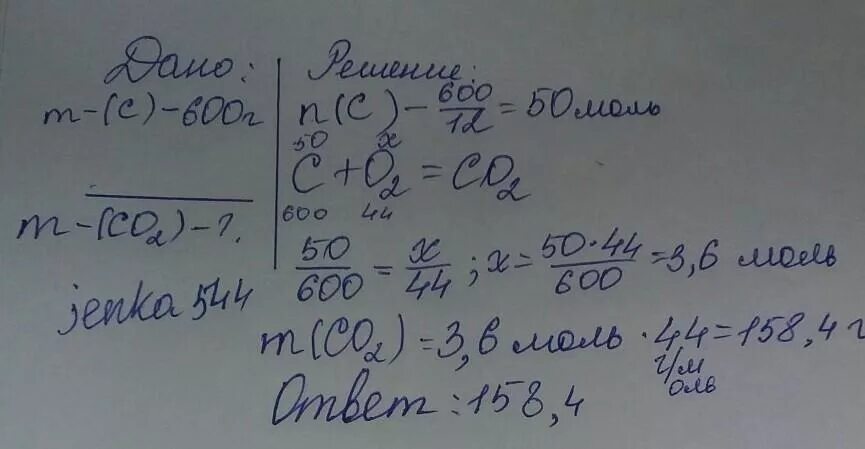 Дано:
m-(C)-600г
m-(CO₂)-?.
jenka 544
Решение:
n(C)-600/12=50 моль
50 x
C+O₂=CO₂
600 44
50/600=x/44; x=50·44/600=3,6 моль
m(CO₂)=3,6 моль·44=158,4 г
г/м
оль
Ответ:158,4